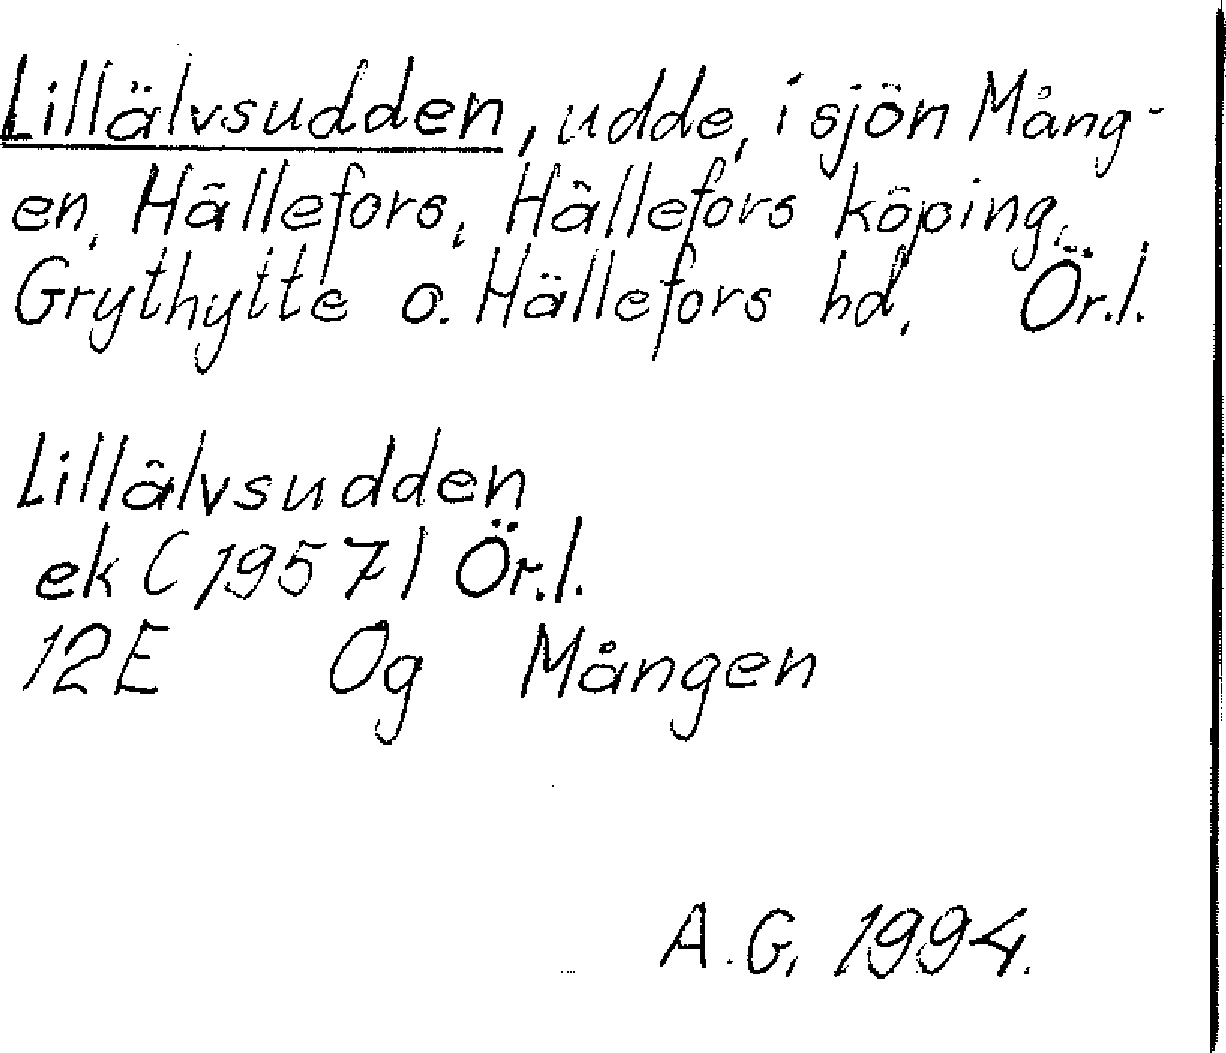 Lillälvsudden, udde, i sjön Mång-
en, Hällefors, Hällefors köping,
Grythytte o. Hällefors hd, Ör.l.
Lillälvsudden
ek (1957) Ör.l.
12E 0g Mången
A.G. 1994.